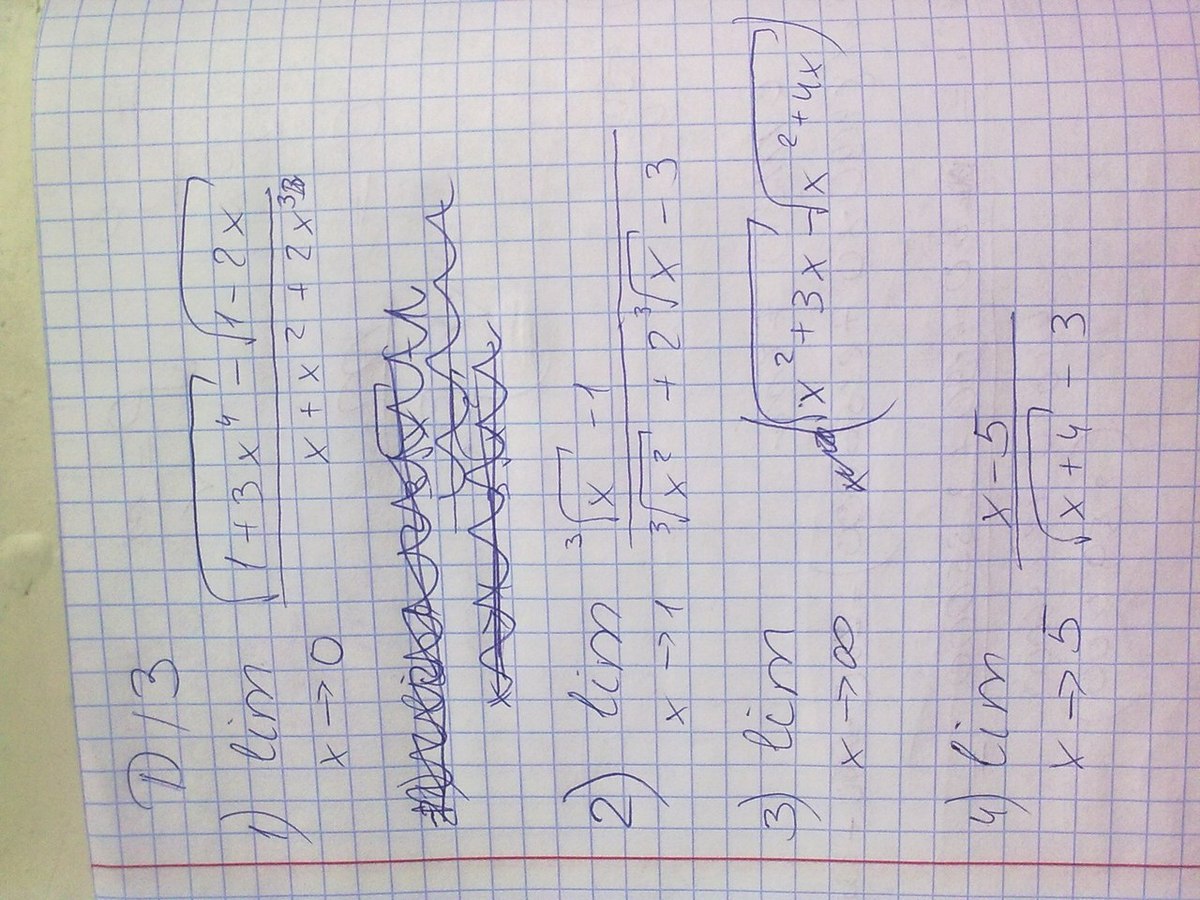 D/3
1) lim x→0 (√(1+3x⁴) - √(1-2x)) / (x + x² + 2x³)
2) lim x→1 (∛x - 1) / (∛x² + 2∛x - 3)
3) lim x→∞ (√(x²+3x) - √(x²+4x))
4) lim x→5 (x-5) / (√(x+4) - 3)